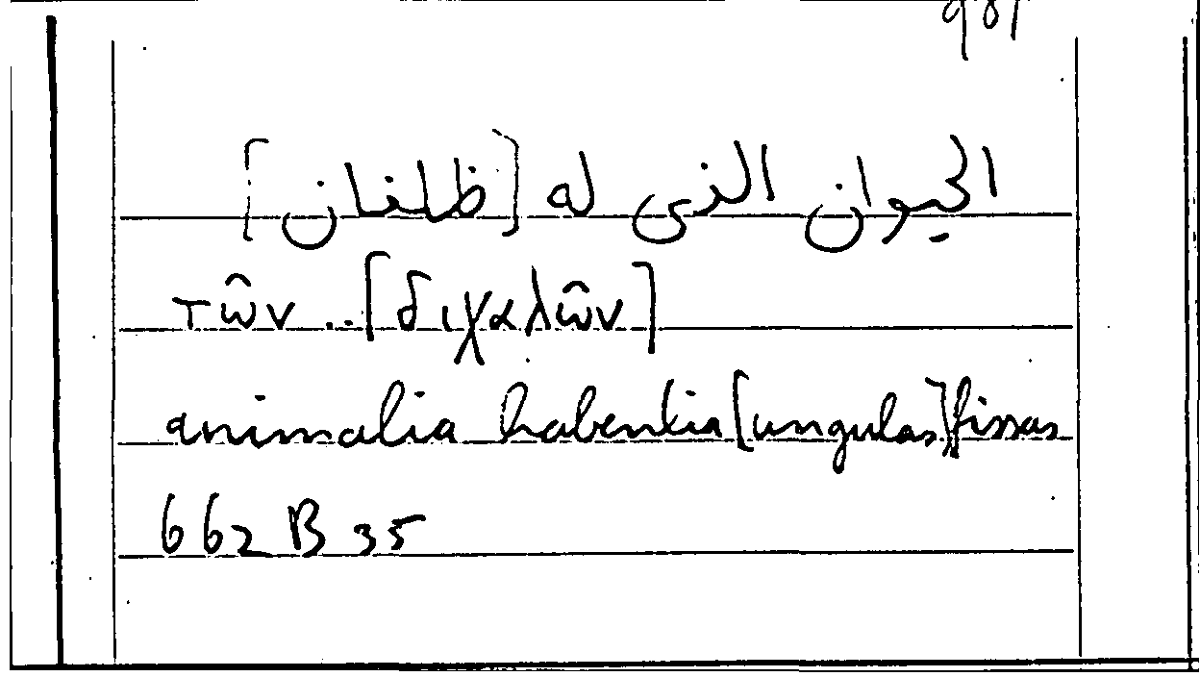 الحيوان الذى له [ظلفان]
τῶν .. [διχαλῶν]
animalia habentia [ungulas] fissas
662 B 35